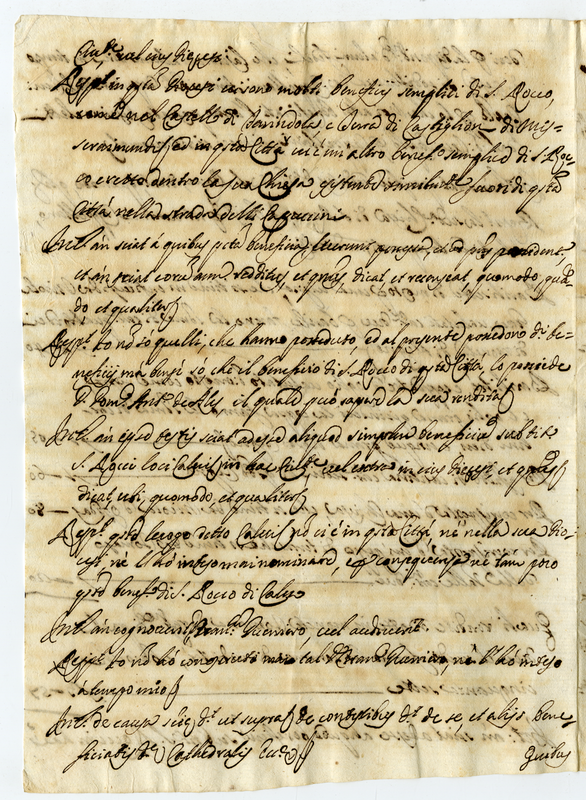 Civ.te vel eius Diocesi
Resp.t in q.sta Diocesi vi sono molti beneficij semplici di S. Rocco,
nel Castello di e Terra di Castiglion di Mis=
seraimundi, ed in q.sta Città vi è un altro benef.o semplice di S. Roc=
co eretto dentro la sua Chiesa fuori di q.sta
Città nella strada delli Cappuccini
Int.s an sciat a quibus p.ta beneficia fuerunt possessa, et ad p.ns possident.r,
et an sciat eorum annuos redditus, et q.tenus dicat, et recenseat, quomodo, qua=
do et qualiter
Resp.t Io nò sò quelli, che hanno posseduto, ed al presente possedono d.i be=
neficij ma bensì sò, che il beneficio di S. Rocco di q.sta Città, lo possiede
D. Dom.co Ant.o de il quale può sapere la sua rendita
Int.s an ipse testis sciat adesse aliquod simplex beneficiu sub tit.o
S. Rocci loci Calvis in hac Civit.e, vel extra in eius Diocesi, et q.tenus
dicat, ubi, quomodo, et qualiter
Resp.t q.sto luogo detto Calvis nò ci è in q.sta Città, nè nella sua Dio=
cesi, nè l'hò inteso mai nominare, e p. conseguenza nè tam poco
q.sto benef.o di S. Rocco di Calvo
Int.s an cognoverit Fran.co Guerriero, vel audiverit
Resp.t Io nò hò conosciuto mai tal Fran.co Guerriero, nè l'hò inteso
à tempo mio
Int.s de causa scie d.t ut supra, de contestibus d.t de se, et alijs bene
ficiatis Cathedralis
quibus